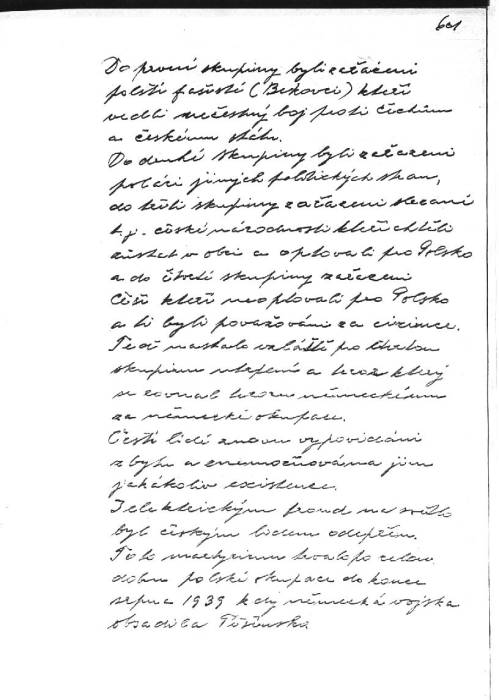 601
Do první skupiny byli zařáćeni
polští fašisti (Bekovci) kteří
vedli nečestný boj proti Čechům
a českému státu.
Do druhé skupiny byli zařazeni
poláci jiných politických stran,
do třetí skupiny zařazeni slezané
t.j. české národnosti kteří chtěli
zůstat v obci a optovali pro Polsko
a do čtvrté skupiny zařazeni
Češi kteří neoptovali pro Polsko
a ti byli považováni za cizince.
Teď nastalo zvláště pro čtvrtou
skupinu utrpení a teror který
se rovnal teroru německému
za německé okupace.
Čeští lidé znovu vypovídáni
z bytu a znemožňována jim
jakákoliv existence.
I elektrickým proud na světlo
byl českým lidem odepřen.
Toto martyrium trvalo po celou
dobu polské okupace do konce
srpna 1939 kdy německá vojska
obsadila Těšínsko